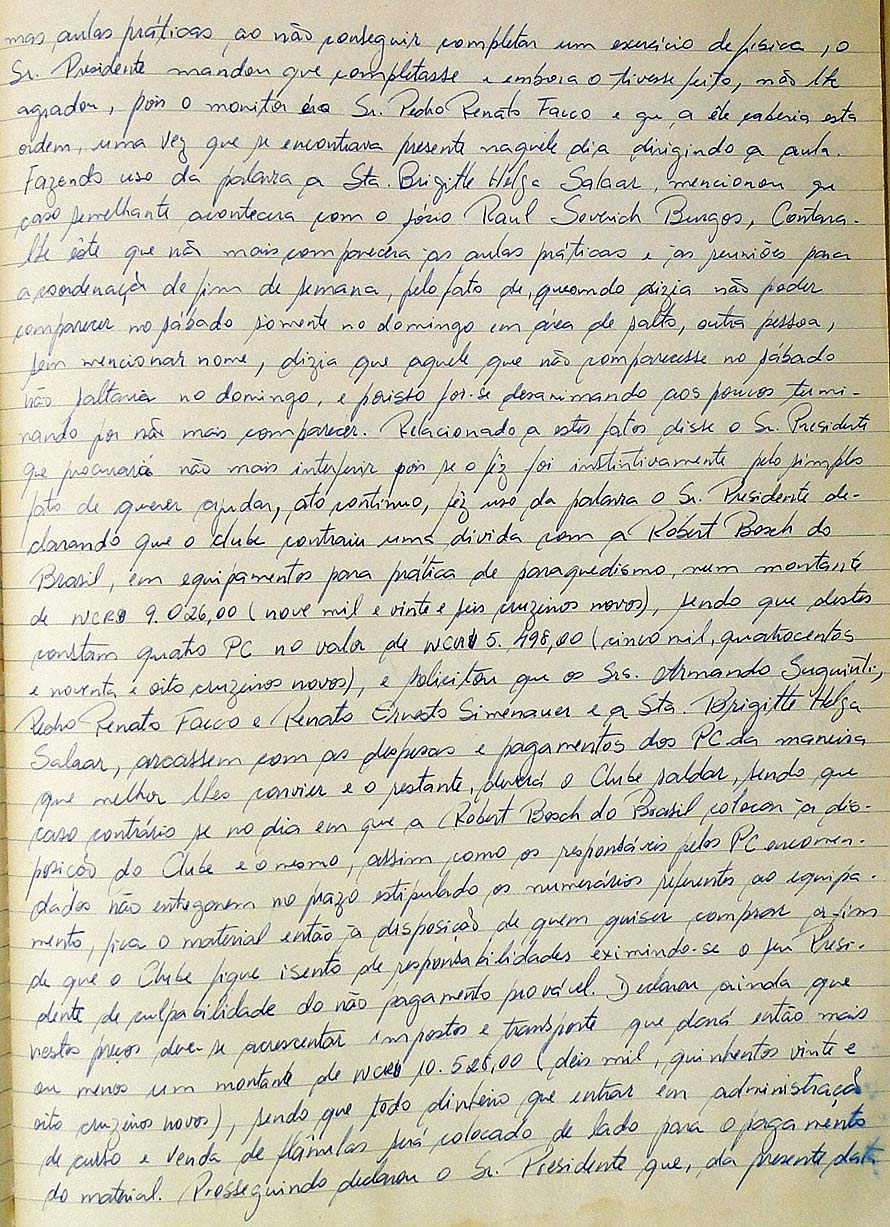 mas aulas práticas ao não conseguir completar um exercício de física, o
Sr. Presidente mandou que completasse e embora o tivesse feito, não lhe
agradou, pois o monitor éra Sr. Pedro Renato Facco e que a êle caberia esta
ordem, uma vez que se encontrava presente naquele dia dirigindo a aula.
Fazendo uso da palavra a Sta. Brigitte Helga Salaar, mencionou que
caso semelhante acontecera com o sócio Raul Burgos, Contara-
lhe êste que não mais comparecera às aulas práticas e às reuniões para
a coordenação de fim de semana, pelo fato de, quando dizia não poder
comparecer no sábado somente no domingo em área de salto, outra pessoa,
sem mencionar nome, dizia que aquele que não comparecesse no sábado
não saltaria no domingo, e porisso foi-se desanimando aos poucos termi-
nando por não mais comparecer. Relacionado a estes fatos disse o Sr. Presidente
que procurará não mais interferir pois se o fêz foi instintivamente pelo simples
fato de querer ajudar, ato contínuo, fêz uso da palavra o Sr. Presidente de-
clarando que o clube contraiu uma dívida com a Robert Bosch do
Brasil, em equipamentos para prática de paraquedismo, num montante
de NCR$ 9.026,00 (nove mil e vinte e seis cruzeiros novos), sendo que destes
constam quatro PC no valor de NCR$ 5.498,00 (cinco mil, quatrocentos
e noventa e oito cruzeiros novos), e solicitou que os Srs. Armando
Pedro Renato Facco e Renato Ernesto Simenauer e a Sta. Brigitte Helga
Salaar, arcassem com as despesas e pagamentos dos PC da maneira
que melhor lhes convier e o restante, deverá o Clube saldar, sendo que
caso contrário se no dia em que a Robert Bosch do Brasil colocar à dis-
posição do Clube e o mesmo, assim como os responsáveis pelos PC encomen-
dados não entregarem no prazo estipulado os numerários referentes ao equipa-
mento, fica o material então à disposição de quem quiser comprar a-fim
de que o Clube fique isento de responsabilidades eximindo-se o seu Presi-
dente de culpabilidade do não pagamento provável. Declarou ainda que
nestes preços deve-se acrescentar impostos e transporte que dará então mais
ou menos um montante de NCR$ 10.528,00 (deis mil, quinhentos vinte e
oito cruzeiros novos), sendo que todo dinheiro que entrar em administração
de curso e venda de flâmulas será colocado de lado para o pagamento
do material. Prosseguindo declarou o Sr. Presidente que, da presente data